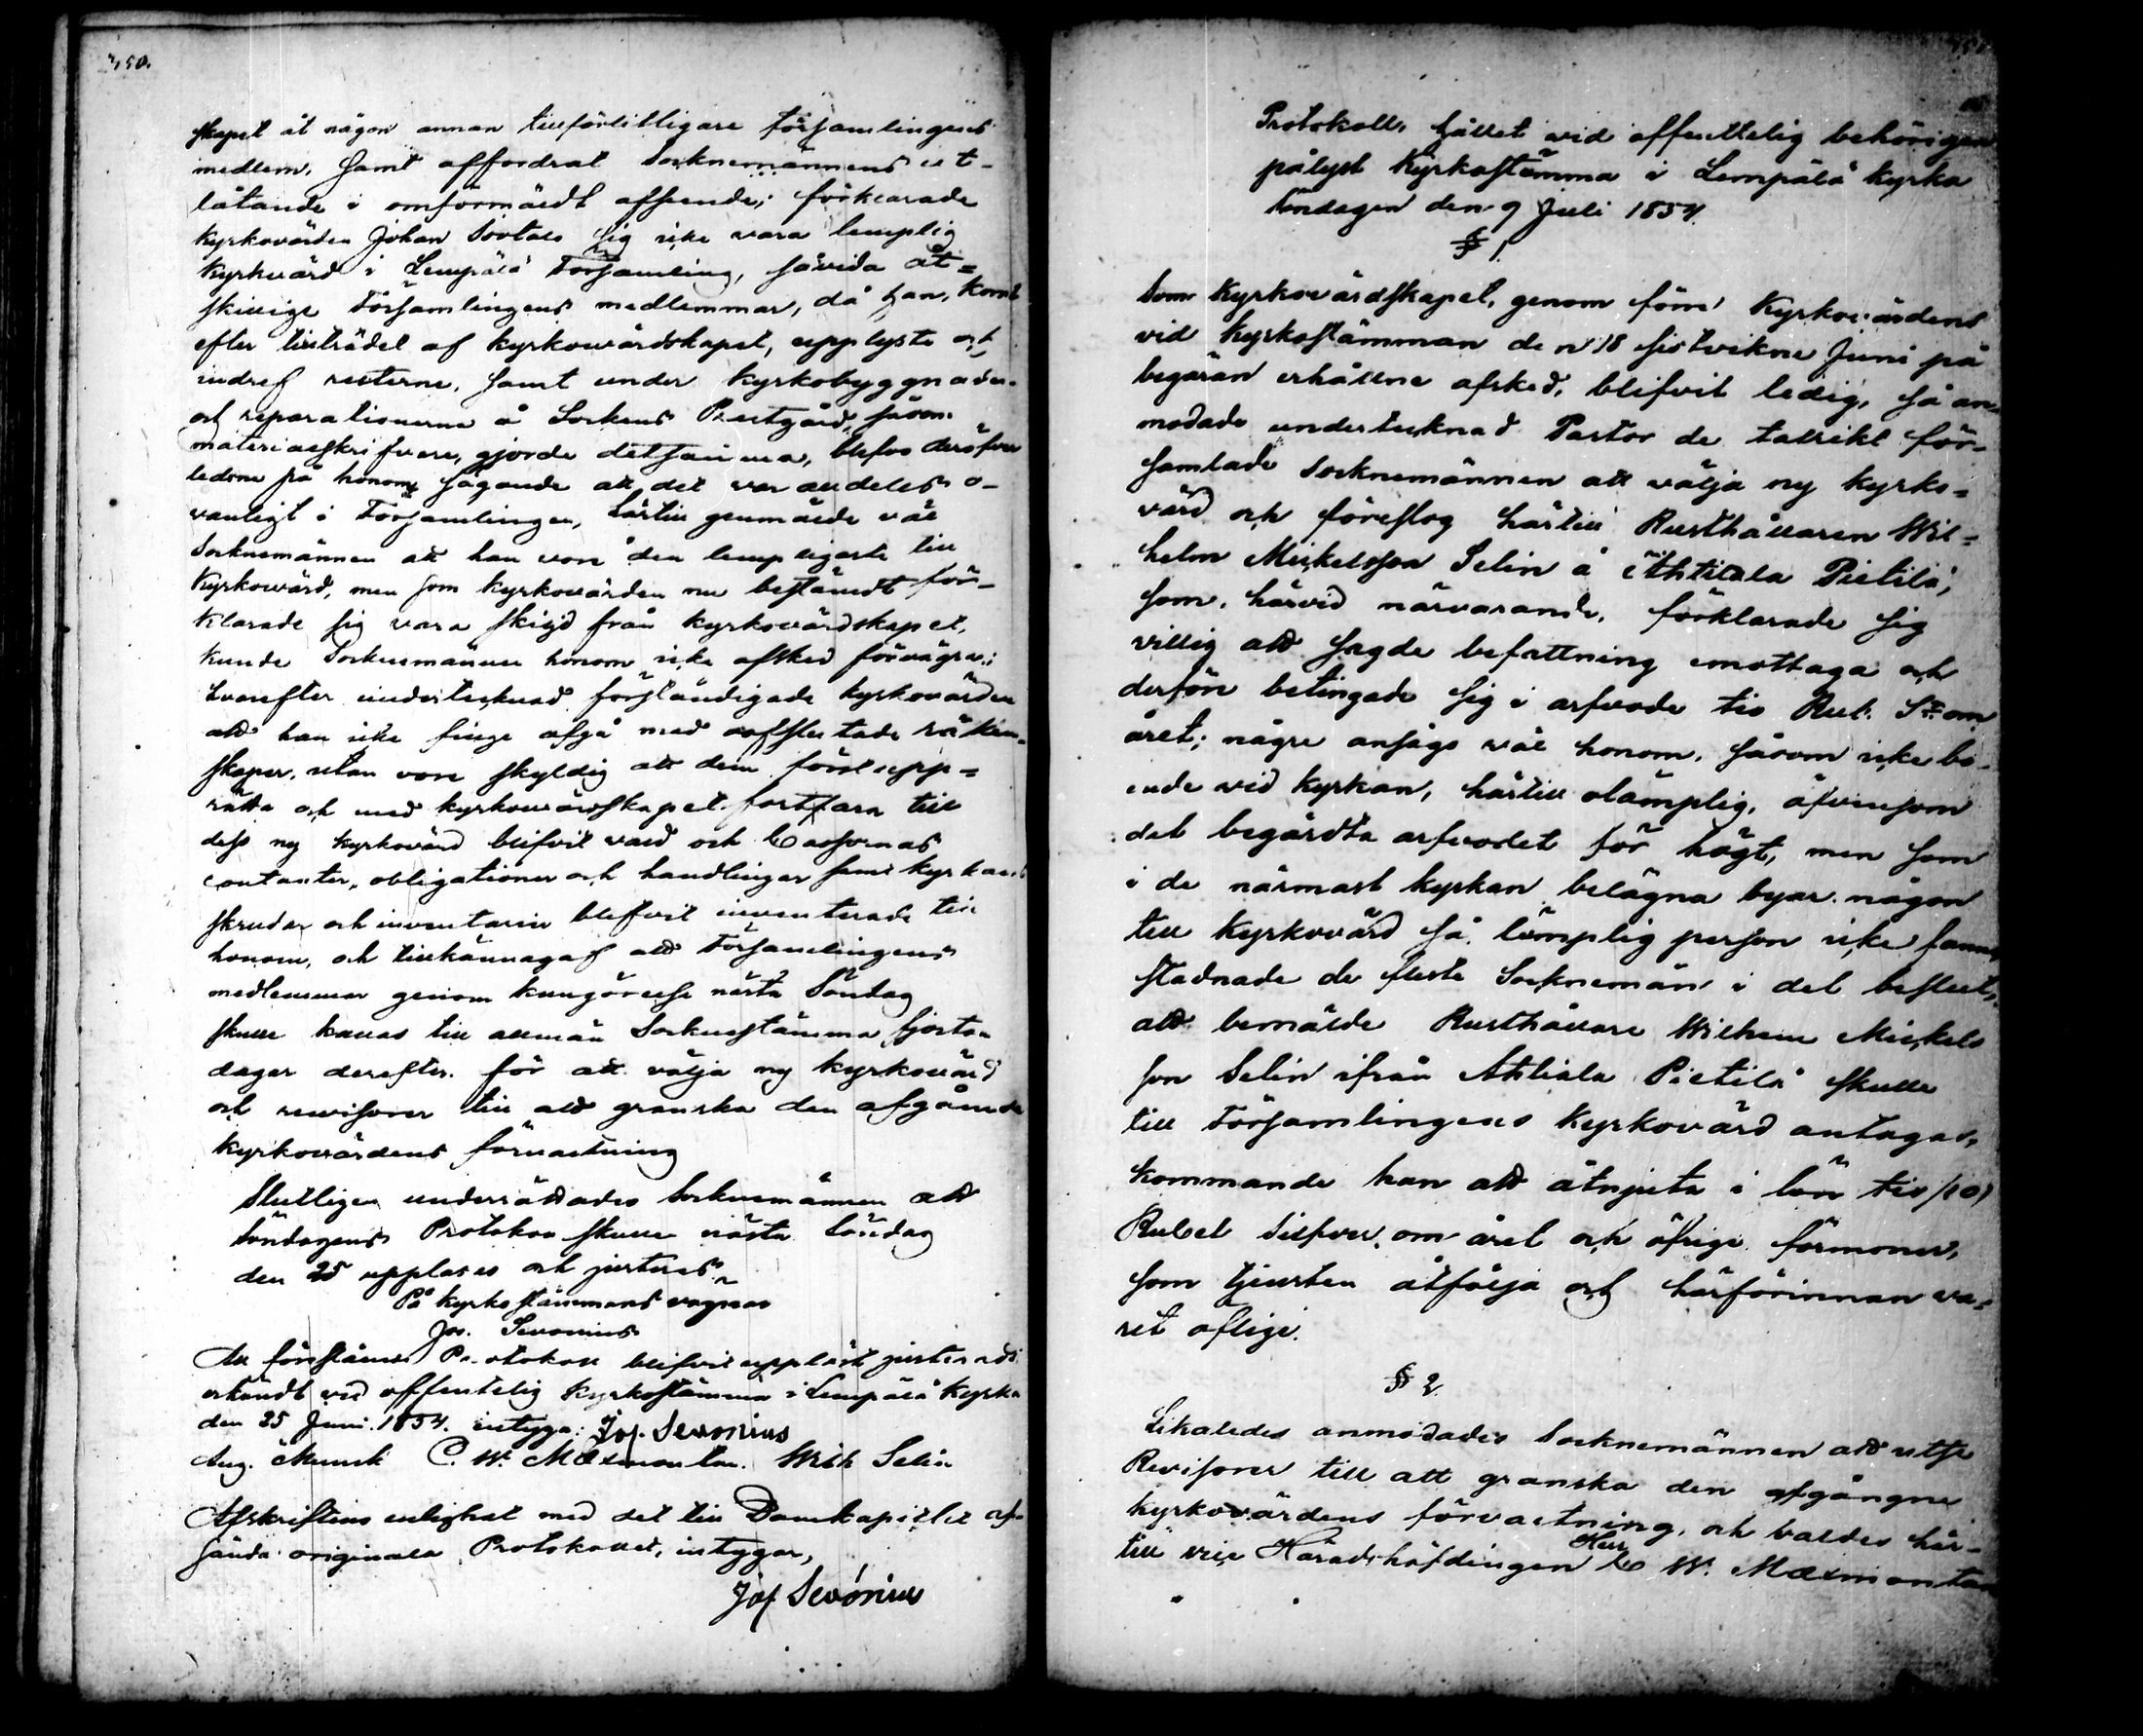 350.
skapet åt någon annan tillförlitligare församlingens
medlem, samt affordrat Socknemännens ut-
låtande i omförmäldt afseende; förklarade
Kyrkovärden Johan Sootals sig icke vara lemplig
Kyrkvärd i Lempälä Församling, såvida åt-
skillige Församlingens medlemmar, då han, kort
efter tillträdet af kyrkovärdskapet, upplyste och
indref resterne, samt under kyrkobyggnaden
och reparationerna å Sockens Prestgård, såsom
materialskrifvare, gjorde detsamma, blefvo deröfver
ledsne på honom sägande att det var alldeles o-
vanligt i Församlingen, härtill genmälde väl
Socknemännen att han vore den lempligaste till
Kyrkovärd, men som kyrkovärden nu bestämdt för-
klarade sig vara skiljd från kyrkovärdskapet,
kunde Socknemännen honom icke afsked förvägra;
hvarefter undertecknad förständigade kyrkovärden
att han icke finge afgå med oafslutade räken-
skaper, utan vore skyldig att dem först upp-
rätta och med kyrkovärdskapet fortfara till
dess ny kyrkovärd blifvit vald och Cassornas
contanter, obligationer och handlingar samt kyrkans
skrudar och inventarier blifvit inventerade till
honom, och tillkännagaf att Församlingens
medlemmar genom kungörelse nästa Söndag
skulle kallas till allmän Sockenstämma fjorton
dagar derefter för att välja ny kyrkovärd
och revisorer till att granska den afgående
kyrkovärdens förvaltning
Slutligen underrättades Socknemännen att
Söndagens Protokoll skulle nästa Söndag
den 25 upplases och justeras.
På kyrkostämmans vägnar
Jos. Sevonius
Att förestående Protokoll blifvit uppläst justeradt
erkändt vid offentelig kyrkostämma i Lempälä kyrka
den 25 Juni 1854. intyga: Jos. Sevonius
Aug. Munck C. W. Mæxmontan. Wilh Selin
Afskriftens enlighet med det till Domkapitlet af-
sända originala Protokollet, intygar,
Jos Sevónius
Protokoll, hållet vid offentelig behörigen
pålyst Kyrkostämma i Lempälä kyrka
Söndagen den 9 Juli 1854.
§ 1.
Som kyrkovärdskapet, genom förre Kyrkovärdens
vid kyrkostämman den 18 sistvikne Juni på
begäran erhållne afsked, blifvit ledig, så an-
modade undertecknad Pastor de talrikt för-
samlade Socknemännen att välja ny kyrko-
värd och föreslog härtill Rusthållaren Wil-
helm Mickelsson Selin å Ahtiala Pietilä,
som, härvid närvarande, förklarade sig
villig att sagde befattning emottaga och
derföre betingade sig i arfvode tio Rub. Sr. om
året; någre ansågo väl honom, såsom icke bo-
ende vid kyrkan, härtill olämplig, äfvensom
det begärdta arfvodet för högt, men som
i de närmast kyrkan belägna byar någon
till kyrkovärd så lämplig person icke fanns,
stadnade de fleste Socknemän i det beslut,
att bemälde Rusthållare Wilhelm Mickels
son Selin ifrån Ahtiala Pietilä skulle
till Församlingens kyrkovärd antagas,
kommande han att åtnjuta i lön tio /10/
Rubel Silfver om året och öfrige förmoner,
som tjensten åtfölja och härförinnan va-
rit öflige.
§ 2.
Likaledes anmodades Socknemännen att utse
Revisorer till att granska den afgångne
kyrkovärdens förvaltning, och valdes här-
till vice Häradshöfdingen Herr C W. Mæxmontan